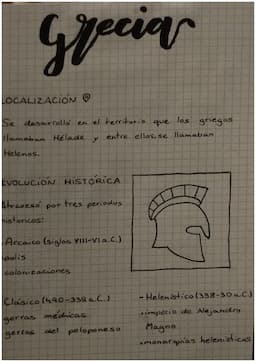 Grecia
LOCALIZACIÓN
Se desarrolló en el territorio que los griegos
llamaban Hélade y entre ellos se llamaban
Helenos.
EVOLUCIÓN HISTÓRICA
Atravesó por tres periodos
históricos:
-Arcaico (siglos VIII-VI a.C.)
polis
colonizaciones
Clásico (490-338 a.C.)
gerras médicas
gerras del peloponeso
-Helenístico (338-30 a.C.)
-imperio de Alejandro
Magno
-monarquías helenísticas